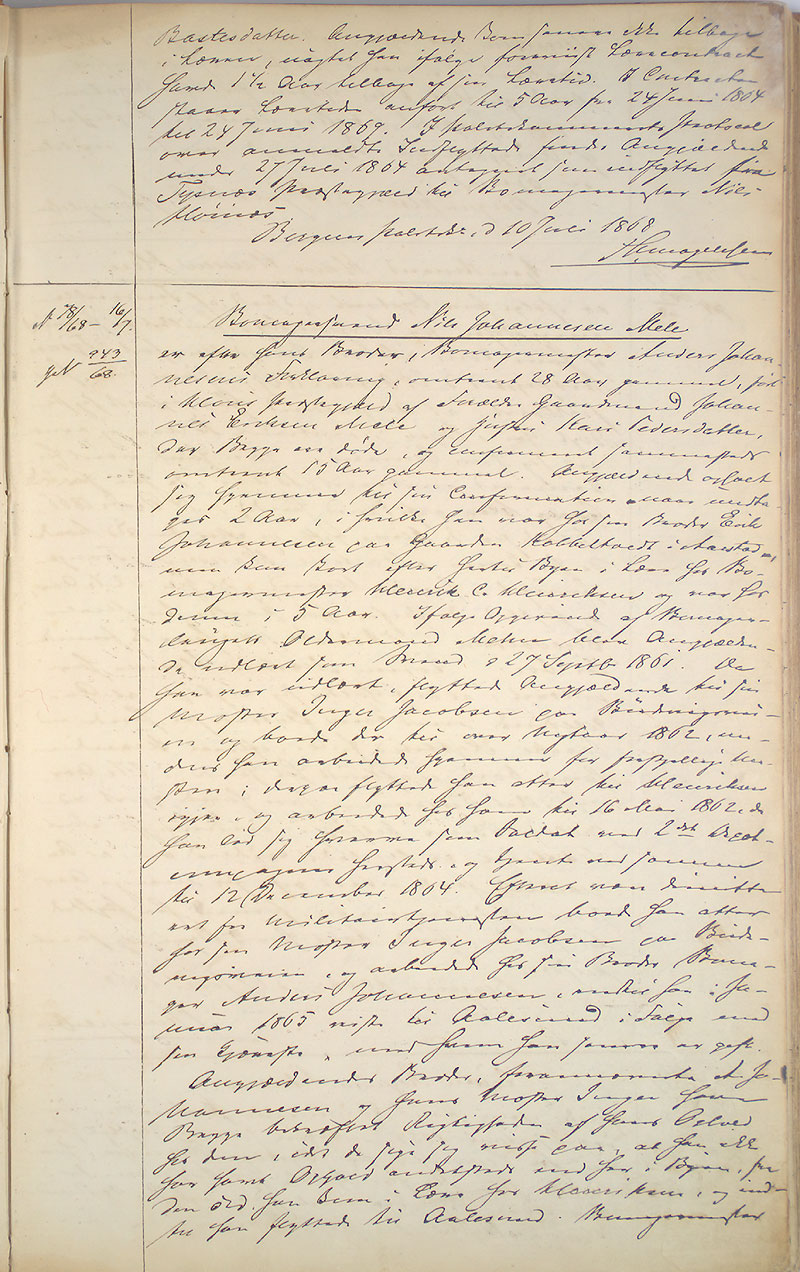 Bastesdatter. Angjældende kom senere ikke tilbage
i Læren, uagtet han ifølge foreviist Lærecontract
havde 1 1/2 Aar tilbage af sin Læretid. I Contracten
staaer Læretiden anført til 5 Aar fra 24 Juni 1864
til 24 Juni 1869. I Politikammerets Protocol
over anmeldte Indflyttede findes Angjældende
under 27 Juli 1864 antegnet som indflyttet fra
Tysnæs Præstegjeld til Bømagermester Nils
Bergens Politik. d 10 Juli 1868
N 78/68 – 16/7.
943/68
Bømagersvend Nils Johannesen Mele
er efter hans Broder, Bømagermester Anders Johan-
nesens Forklaring, omtrent 28 Aar gammel, født
i Præstegjeld af Forældre Gaardmand Johan-
nes Eriksen Mele og Hustru Kari Pedersdatter,
der Begge ere døde, og confirmeret sammesteds
omtrent 15 Aar gammel. Angjældende opholdt
sig hjemme til sin Confirmation naar undta-
ges 2 Aar, i hvilke han var hos sin Broder Erik
Johannesen paa Gaarden i Aarstad,
men kom kort efter hertil Byen i Lære hos Bø-
magermester Henrik C. Henriksen og var hos
denne i 5 Aar. Ifølge Opgivende af Bømager-
laugets Oldermand blev Angjælden-
de udlært som Svend d 27 Septbr 1861. Da
han var udlært, flyttede Angjældende til sin
Moster Inger Jacobsen paa
en og boede der til over Nytaar 1862, me-
dens han arbeidede hjemme for forskjellige Me-
stere; derpaa flyttede han atter til Henriksen
igjen, og arbeidede hos ham til 16 Mai 1862, da
han lod sig hverve som Soldat ved 2det
compagni hersteds, og tjente ved samme
til 12 December 1864. Efter at være dimitte-
ret fra Militairtjenesten boede han atter
hos sin Moster Inger Jacobsen paa
og arbeidede hos sin Broder Bøma-
ger Anders Johannesen, indtil han i Ja-
nuar 1865 reiste til Aalesund i Følge med
sin Kjæreste, med hvem han senere er gift.
Angjældendes Broder, fornævnte A. Jo-
hannesen og hans Moster Inger have
Begge bekræftet Rigtigheden af hans Ophold
her, idet de sige sig visse paa, at han ikke
har havt Ophold andetsteds end her i Byen, fra
den Tid han kom i Lære hos Henriksen, og ind-
til han flyttede til Aalesund. Bømagermester